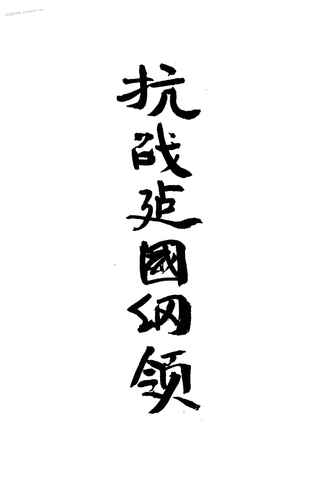 抗战建國纲领